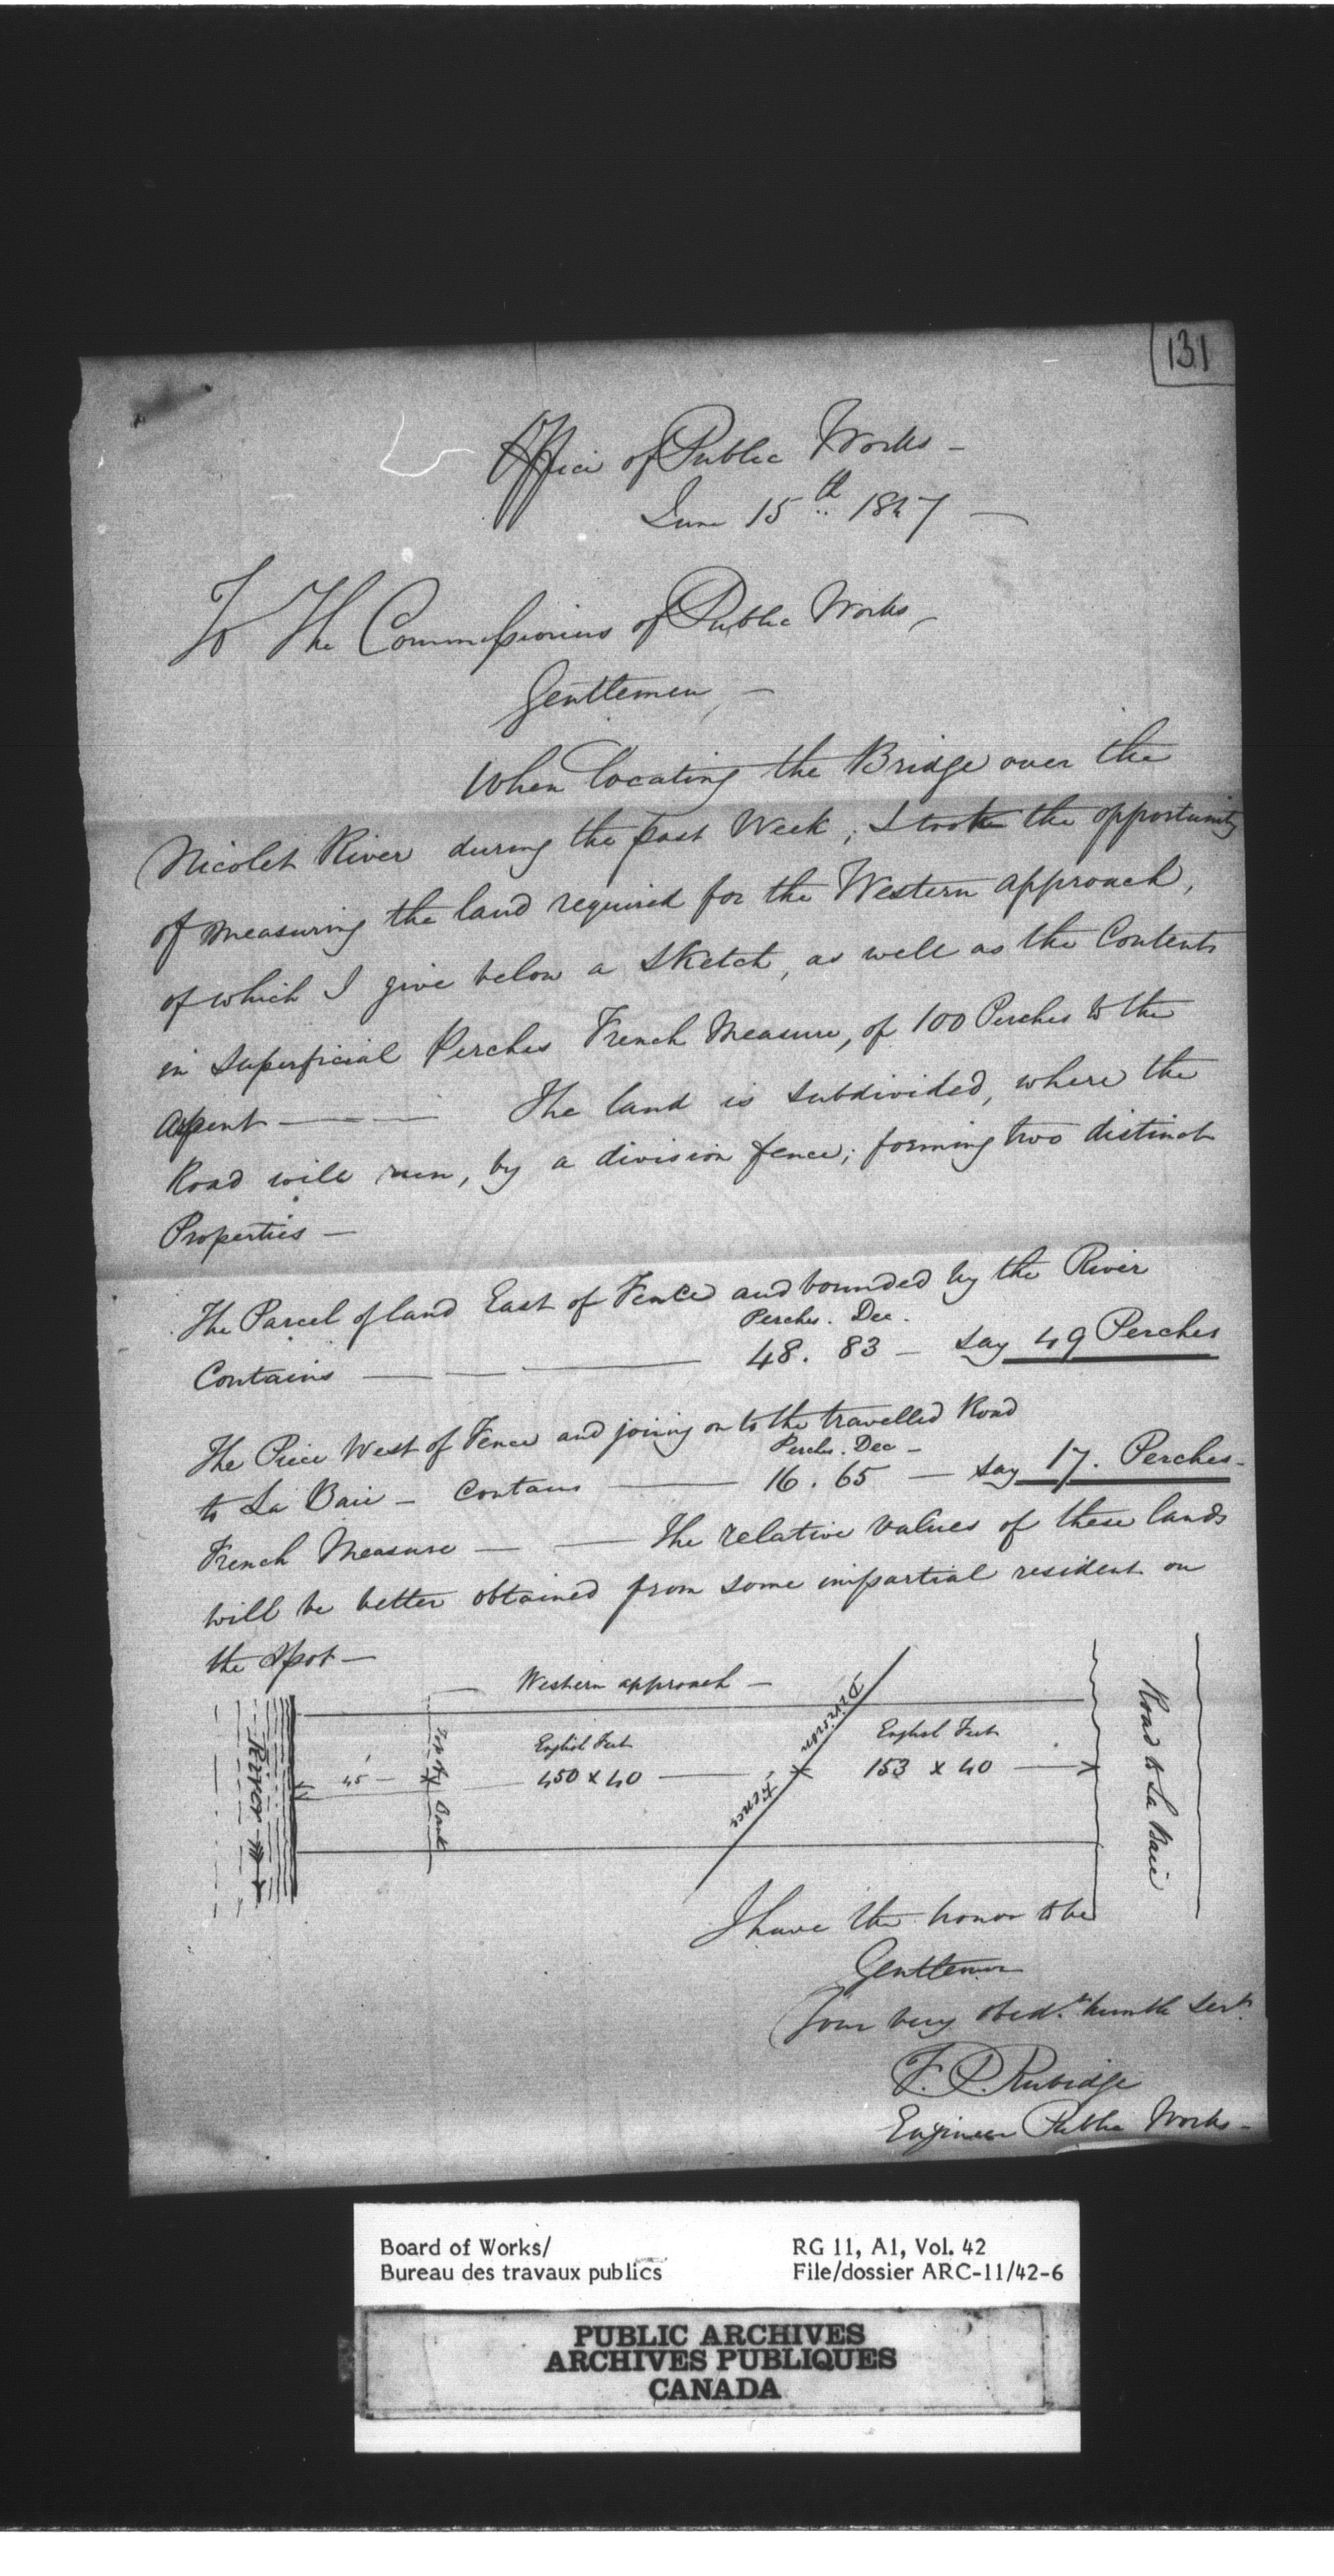 131
Office of Public Works -
June 15th 1847 -
To The Commissioners of Public Works,
Gentlemen, -
When locating the Bridge over the
Nicolet River during the past Week, I took the opportunity
of measuring the land required for the Western approach,
of which I give below a Sketch, as well as the Contents
in Superficial Perches French Measure, of 100 Perches to the
Arpent - - - The land is subdivided, where the
Road will run, by a division fence; forming two distinct
Properties -
The Parcel of land East of Fence and bounded by the River
Perches. Dec.
Contains - - - 48. 83 - say 49 Perches
The Piece West of Fence and joining on to the travelled Road
Perches. Dec -
to La Baie - Contains - 16. 65 - say 17. Perches -
French Measure - - The relative values of these lands
will be better obtained from some impartial resident on
the Spot -
Western approach -
River
45
Top of Bank
English Feet
450 x 40
Division Fence
English Feet
153 x 40
Road to La Baie
I have the honor to be
Gentlemen
Your very obedt. humble servt.
F. P. Rubidge
Engineer Public Works -
Board of Works/
Bureau des travaux publics
RG 11, A1, Vol. 42
File/dossier ARC-11/42-6
PUBLIC ARCHIVES
ARCHIVES PUBLIQUES
CANADA